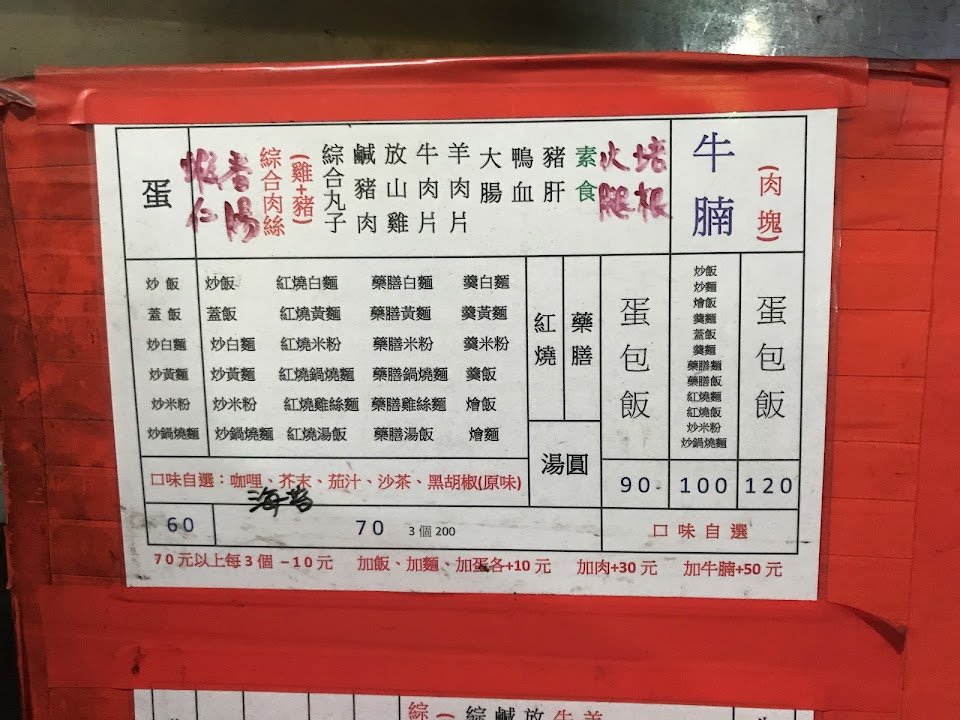 蛋
蝦仁
香腸
綜合肉絲
(雞+豬)
綜合丸子
鹹豬肉
放山雞
牛肉片
羊肉片
大腸
鴨血
豬肝
素食
火腿
培根
牛腩
(肉塊)
炒飯 炒飯 紅燒白麵 藥膳白麵 羹白麵
蓋飯 蓋飯 紅燒黃麵 藥膳黃麵 羹黃麵
炒白麵 炒白麵 紅燒米粉 藥膳米粉 羹米粉
炒黃麵 炒黃麵 紅燒鍋燒麵 藥膳鍋燒麵 羹飯
炒米粉 炒米粉 紅燒雞絲麵 藥膳雞絲麵 燴飯
炒鍋燒麵 炒鍋燒麵 紅燒湯飯 藥膳湯飯 燴麵
紅燒
藥膳
湯圓
蛋包飯
炒飯
炒麵
燴飯
羹麵
蓋飯
羹麵
藥膳麵
藥膳飯
紅燒麵
紅燒飯
炒米粉
炒鍋燒麵
蛋包飯
口味自選：咖哩、芥末、茄汁、沙茶、黑胡椒(原味)
海苔
90 100 120
60 70 3個200 口味自選
70元以上每3個 －10元 加飯、加麵、加蛋各+10元 加肉+30元 加牛腩+50元
綜 ( 綜 鹹 放 牛 羊